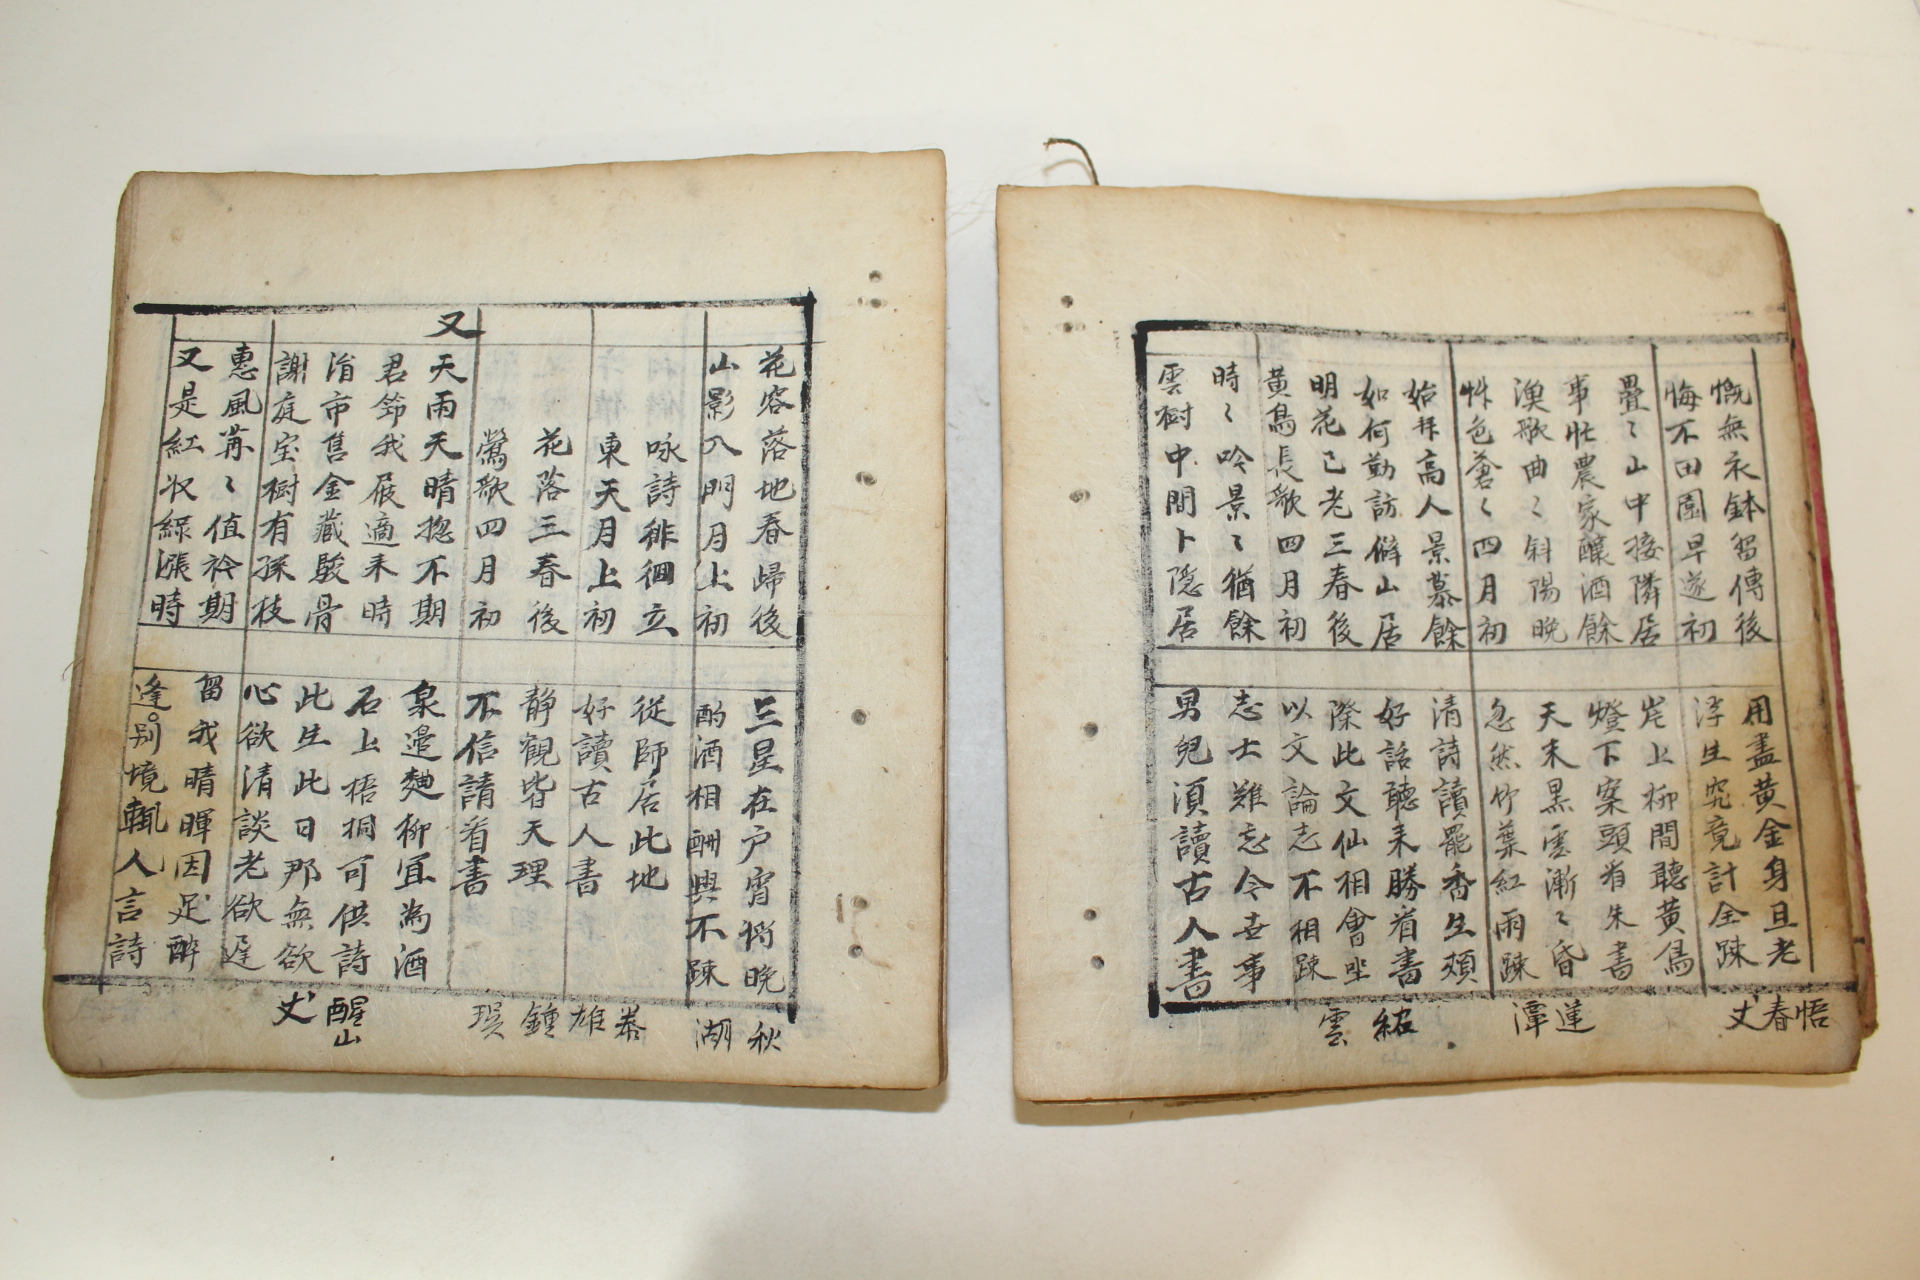 慨無衣鉢習傳後 用盡黃金身且老
悔不田園早遂初 浮生究竟計全踈
悟春丈
疊〻山中接隣居 岸上柳間聽黃鳥
事忙農家釀酒餘 燈下案頭看朱書
漁歌曲〻斜陽晚 天末黑雲漸〻昏
怵色蒼〻四月初 忽然竹葉紅雨踈
蓮潭
始拜高人景慕餘 清詩讀罷香生頰
如何勤訪僻山居 好話聽来勝看書
明花已老三春後 際此文仙相會坐
黃鳥長歌四月初 以文論志不相踈
時〻吟景〻猶餘 志士難忘今世事
雲樹中間卜隱居 男兒須讀古人書
雲
花容落地春歸後 三星在户宵將晚
山影入門月上初 酌酒相酬興不踈
秋湖
咏詩徘徊立 從師居此地
東天月上初 好讀古人書
雄
花落三春後 静觀皆天理
鶯歌四月初 不信請看書
鍾
又
天雨天晴揔不期 泉邊麯柳宜為酒
君笻我屐適来時 石上梧桐可供詩
淯市售金藏駿骨 此生此日那無欲
謝庭宝樹有孫枝 心欲清談老欲遅
醒山丈
惠風苒〻值衿期 留我晴暉因足醉
又是紅收綠漲時 逢别境輒人言詩